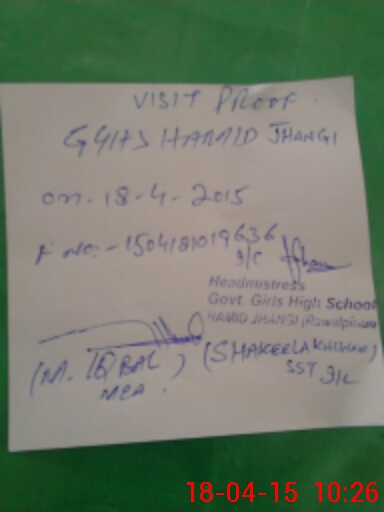 VISIT PROOF.
GGHS HAMID JHANGI
on. 18-4-2015
F No:- 1504181019636
I/C
Headmistress
Govt. Girls High School
HAMID JHANGI (Rawalpindi)
(M. IQBAL) (SHAKEELA KHURSHID)
MEA. SST I/C
18-04-15 10:26